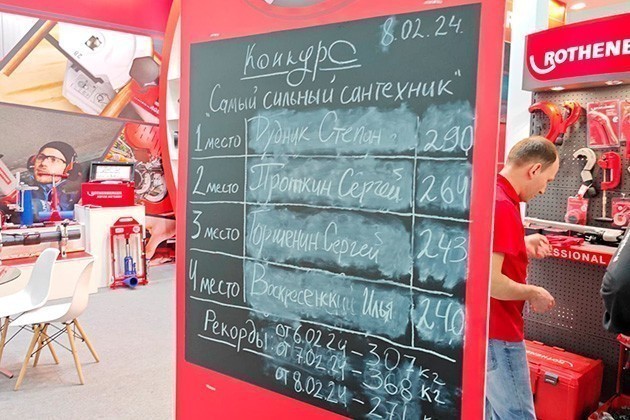 8.02.24.
Конкурс
"Самый сильный сантехник"
1 место Рудник Степан 290
2 место Проткин Сергей 264
3 место Горшенин Сергей 243
4 место Воскресенский Илья 240
Рекорды: от 6.02.24 – 307 кг
от 7.02.24 – 368 кг
от 8.02.24 – 271 кг
ROTHENBE
ROTHENBERGER
ESSIONAL